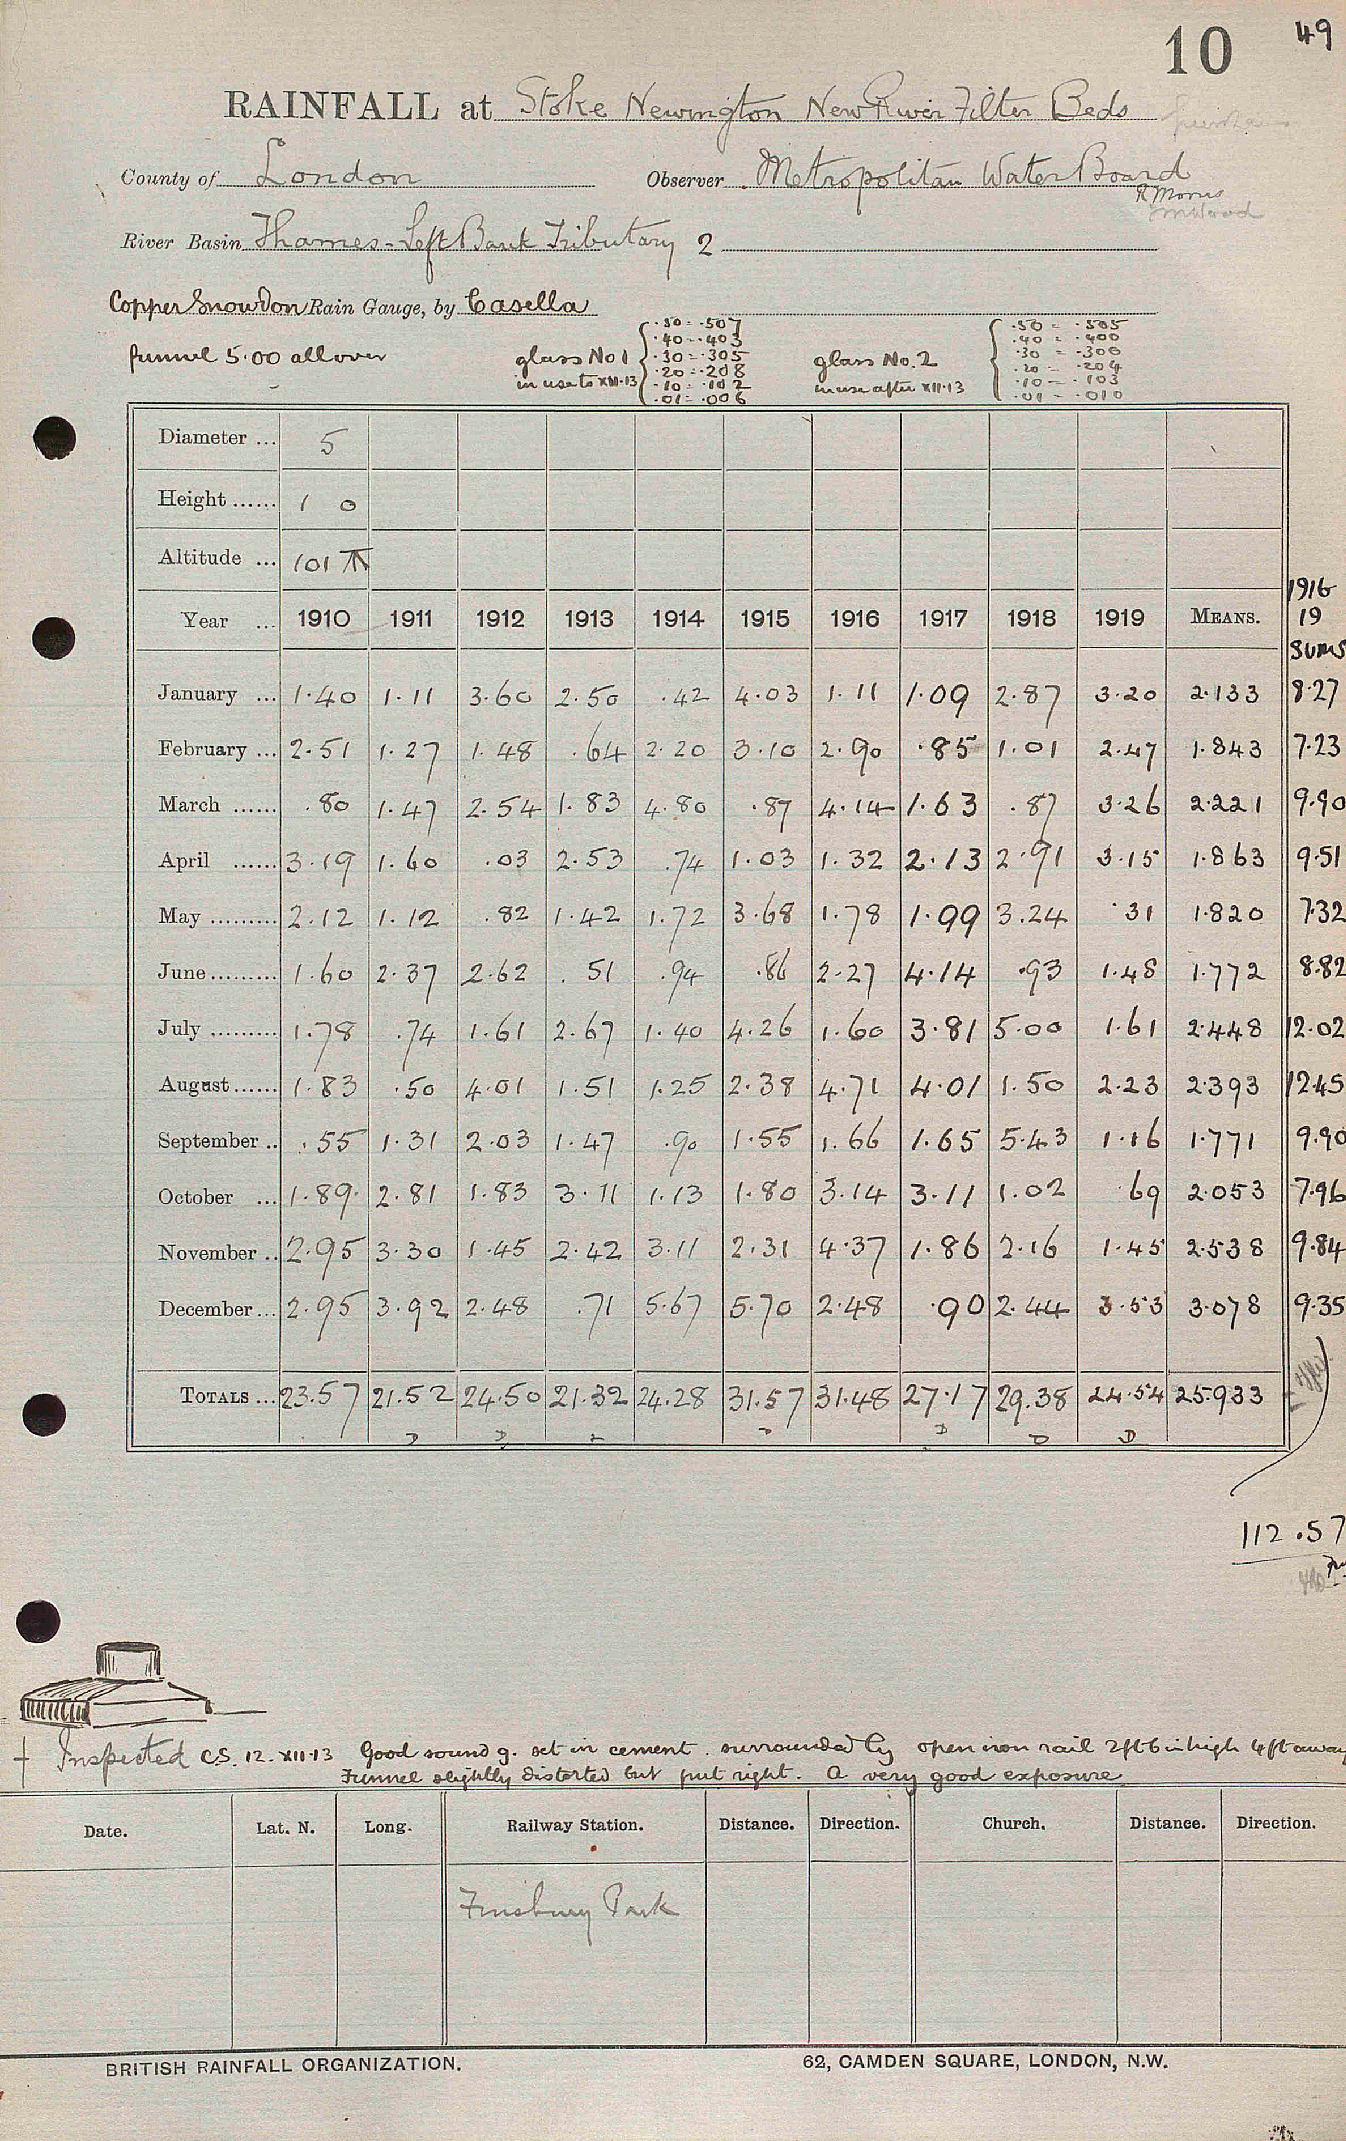 10 49
RAINFALL at Stoke Newington New River Filter Beds
County of London Observer Metropolitan Water Board
R Morris
River Basin Thames-Left Bank Tributary 2
Copper Snowdon Rain Gauge, by Casella
funnel 5.00 all over
glass No 1 in use to XII.13
.50 = .507
.40 = .403
.30 = .305
.20 = .208
.10 = .102
.01 = .006
glass No. 2 in use after XII.13
.50 = .505
.40 = .400
.30 = .306
.20 = .204
.10 = .103
.01 = .010
Diameter ... 5
Height ...... 1 0
Altitude ... 101
Year ... 1910 1911 1912 1913 1914 1915 1916 1917 1918 1919 MEANS. 1916 19 SUMS
January ... 1.40 1.11 3.60 2.50 .42 4.03 1.11 1.09 2.87 3.20 2.133 8.27
February ... 2.51 1.27 1.48 .64 2.20 3.10 2.90 .85 1.01 2.47 1.843 7.23
March ...... .80 1.47 2.54 1.83 4.80 .87 4.14 1.63 .87 3.26 2.221 9.90
April ...... 3.19 1.60 .03 2.53 .74 1.03 1.32 2.13 2.91 3.15 1.863 9.51
May ......... 2.12 1.12 .82 1.42 1.72 3.68 1.78 1.99 3.24 .31 1.820 7.32
June......... 1.60 2.37 2.62 .51 .94 .86 2.27 4.14 .93 1.48 1.772 8.82
July ......... 1.78 .74 1.61 2.67 1.40 4.26 1.60 3.81 5.00 1.61 2.448 12.02
August...... 1.83 .50 4.01 1.51 1.25 2.38 4.71 4.01 1.50 2.23 2.393 12.45
September .. .55 1.31 2.03 1.47 .90 1.55 1.66 1.65 5.43 1.16 1.771 9.90
October ... 1.89 2.81 1.83 3.11 1.13 1.80 3.14 3.11 1.02 .69 2.053 7.96
November .. 2.95 3.30 1.45 2.42 3.11 2.31 4.37 1.86 2.16 1.45 2.538 9.84
December... 2.95 3.92 2.48 .71 5.67 5.70 2.48 .90 2.44 3.53 3.078 9.35
TOTALS ... 23.57 21.52 24.50 21.32 24.28 31.57 31.48 27.17 29.38 24.54 25.933
D D D D D
112.57
Inspected C.S. 12.XII.13 Good sound g. set in cement. surrounded by open iron rail 2ft 6in high 4ft away
Funnel slightly distorted but put right. A very good exposure
Date. Lat. N. Long. Railway Station. Distance. Direction. Church. Distance. Direction.
Finsbury Park
BRITISH RAINFALL ORGANIZATION. 62, CAMDEN SQUARE, LONDON, N.W.